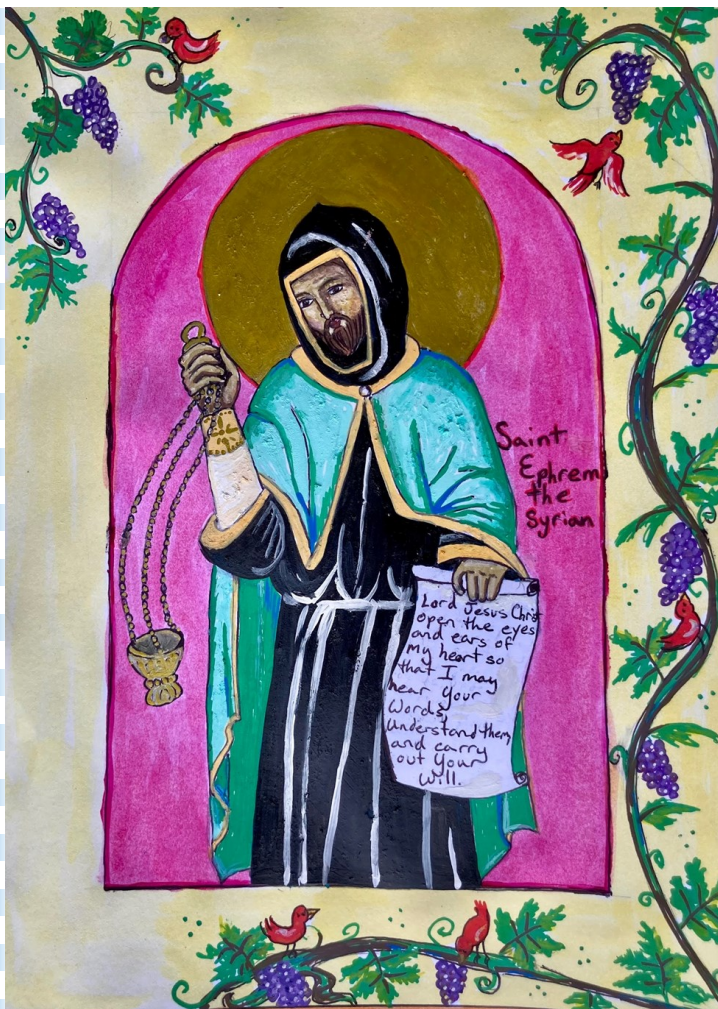 Saint
Ephrem
the
Syrian
Lord Jesus Christ
open the eyes
and ears of
my heart so
that I may
hear Your
Words,
Understand them,
and carry
out Your
Will.